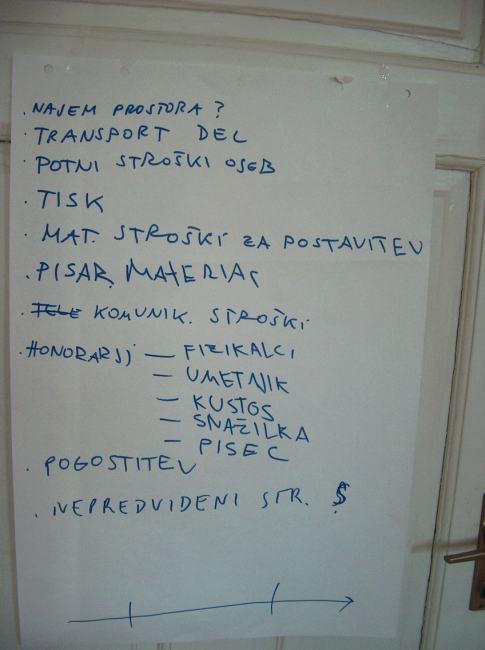 · NAJEM PROSTORA ?
· TRANSPORT DEL
· POTNI STROŠKI OSEB
· TISK
· MAT. STROŠKI ZA POSTAVITEV
· PISAR. MATERIAL
· TELE KOMUNIK. STROŠKI
· HONORARJI — FIZIKALCI
— UMETNIK
— KUSTOS
— SNAŽILKA
— PISEC
· POGOSTITEV
· NEPREDVIDENI STR. $